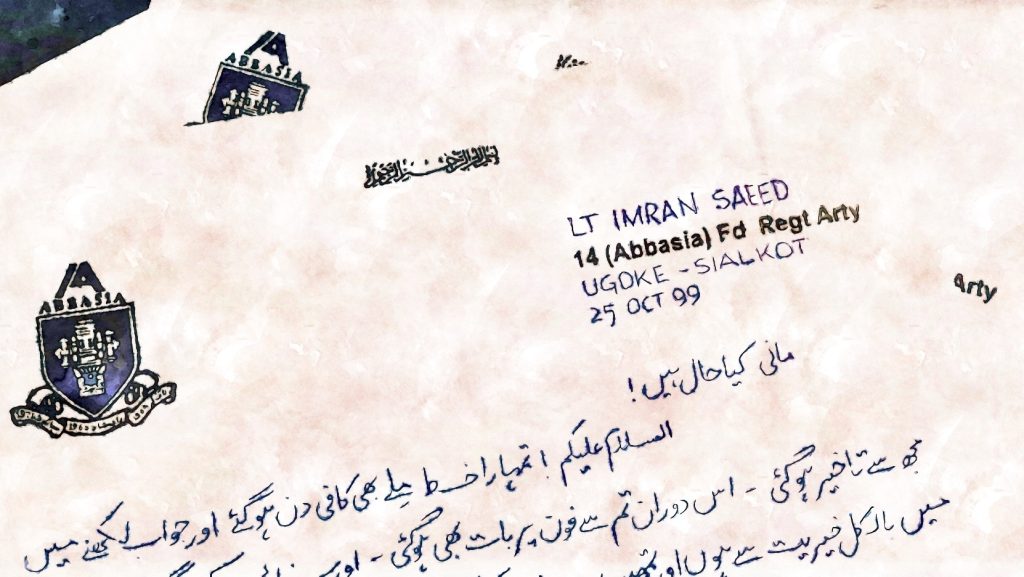 ABBASIA
بسم اللہ الرحمٰن الرحیم
LT IMRAN SAEED
14 (Abbasia) Fd Regt Arty
UGOKE - SIALKOT
25 OCT 99
Arty
ABBASIA
مانی کیا حال ہیں!
السلام علیکم! تمہارا خط ملے بھی کافی دن ہو گئے اور جواب لکھنے میں
مجھ سے تاخیر ہو گئی - اس دوران تم سے فون پر بات بھی ہو گئی - اور
میں بالکل خیریت سے ہوں اور